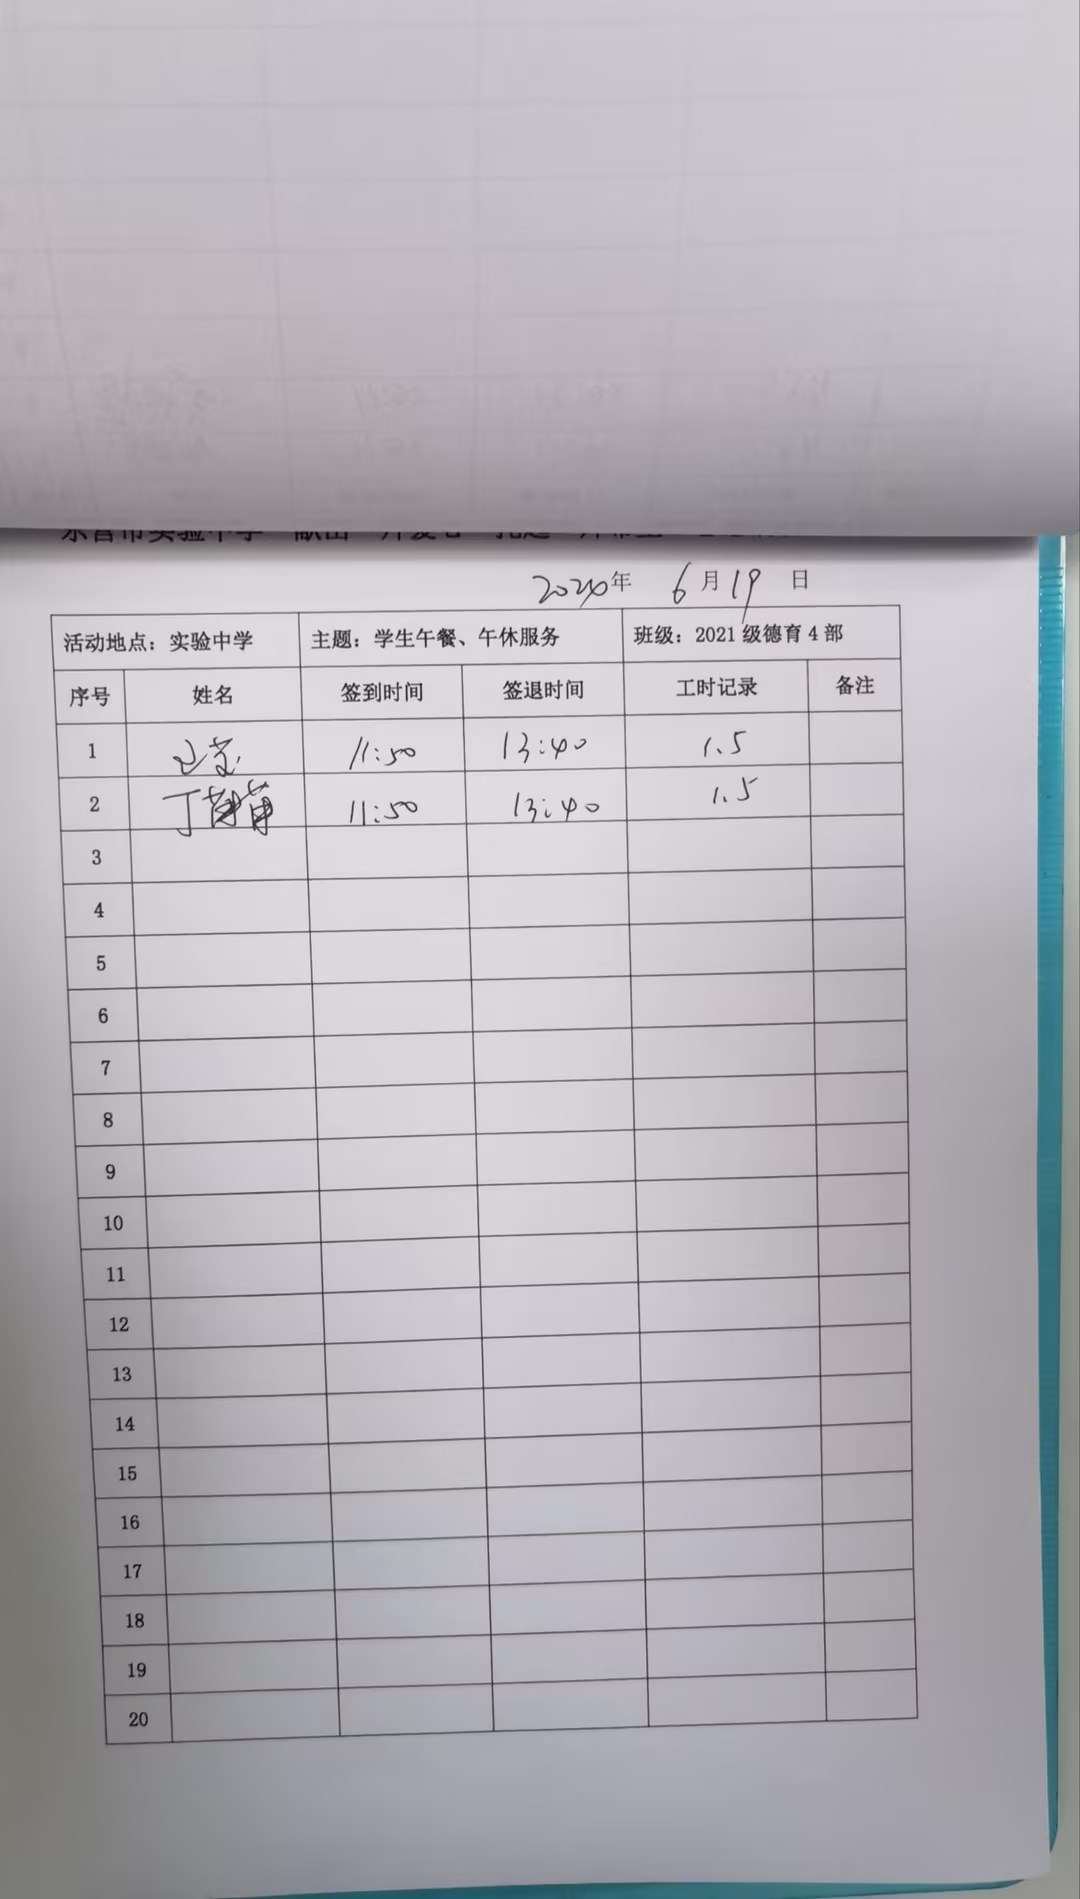 2024年 6月19日
活动地点：实验中学 主题：学生午餐、午休服务 班级：2021级德育4部
序号 姓名 签到时间 签退时间 工时记录 备注
1 11:50 13:40 1.5
2 丁 11:50 13:40 1.5
3
4
5
6
7
8
9
10
11
12
13
14
15
16
17
18
19
20